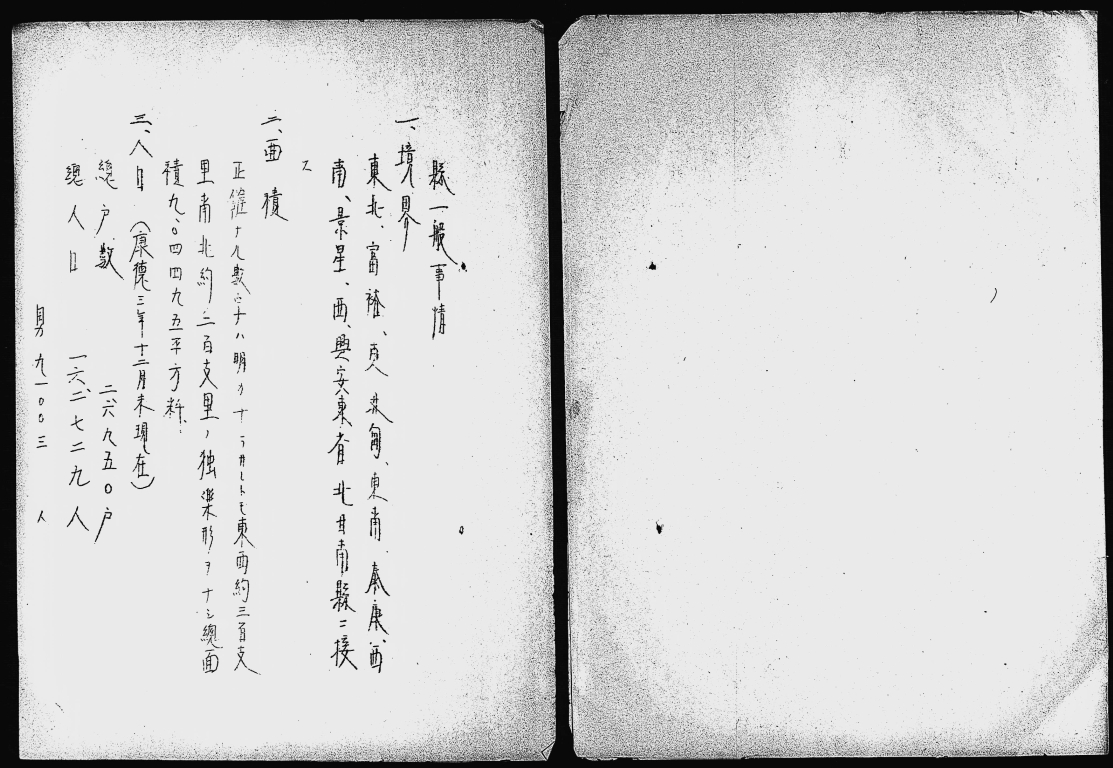 縣一般事情
一、境界
東北、富裕、東 林甸、東南、泰康、西
南、景星、西、興安東省 北 甘南縣ニ接
ス
二、面積
正確ナル數字ナハ明カナラサレトモ東西約三百支
里南北約二百支里ノ独楽形ヲナシ總面
積九〇四四九五平方粁、
三、人口（康德三年十二月末現在）
總戸數 二六、九五〇戸
總人口 一六二、七二九人
男 九一〇〇三 人